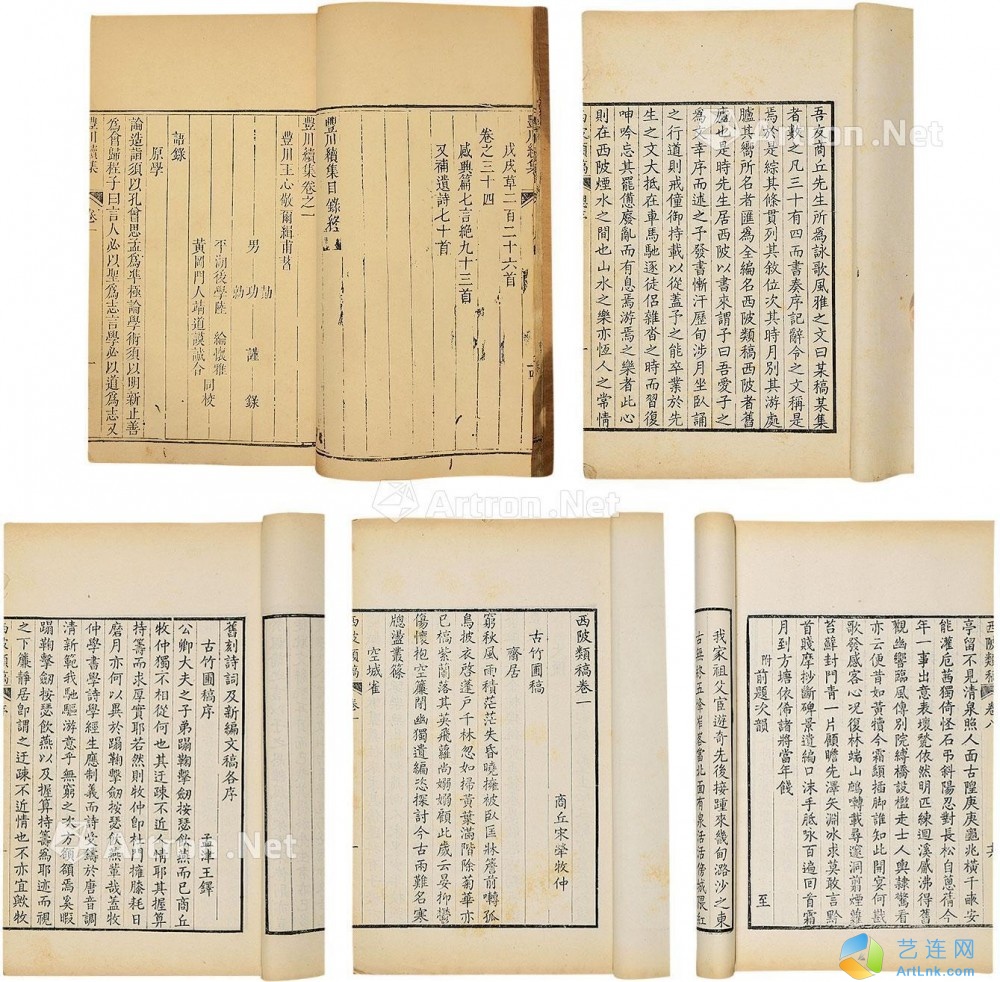 豐川續集
戊戌草二百二十六首
卷之三十四
咸典篇七言絶九十三首
又補遺詩七十首
豐川續集目錄終
豐川續集卷之一
豐川王心敬爾緝甫著
男功謹錄
勍勷
平湖後學陸綸懷雅
黃岡門人靖道謨誠合同校
語錄
原學
論造詣須以孔曾思孟爲準極論學術須以明新止善
爲會歸程子曰言人必以聖爲志言學必以道爲志又
豐川續集
卷一
吾友商丘先生所爲詠歌風雅之文曰某稿某集
者數之凡三十有四而書奏序記辭令之文稱是
焉於是綜其條貫列其敘位次其時月別其游處
臚其嚮所名者匯爲全編名西陂類稿西陂者舊
廬也是時先生居西陂以書來謂子曰吾愛子之
爲文幸序而述之予發書慚汗歷旬涉月坐臥誦
之行道則戒僮御持載以從蓋予之能卒業於先
生之文大抵在車馬馳逐徒侶雜沓之時而習復
呻吟忘其罷憊廢亂而有息焉游焉之樂者此心
則在西陂煙水之間也山水之樂亦恆人之常情
舊刻詩詞及新編文稿各序
古竹圃稿序
孟津王鐸
公卿大夫之子弟蹋鞠擊劒按瑟飲燕而已商丘
牧仲獨不相從何也其迂疎不近人情耶其握算
持籌而求厚實耶若然則牧仲卽持梁擁膝耗日
磨月亦何以異於蹋鞠擊劒按瑟飲燕無輩哉蓋牧
仲學書學詩學經生應制義而詩受鑄於唐音調
清新範我馳驅游意乎無窮之大方頟頟焉奚暇
蹋鞠擊劒按瑟飲燕以及握算持籌爲耶迹而視
之下簾靜居卽謂之迂疎不近情也不亦宜歟牧
西陂類稿卷一
商丘宋犖牧仲
古竹圃稿
齋居
窮秋風雨積茫茫失昏曉擁被臥匡牀簷前囀孤
鳥披衣啓蓬戶千林忽如掃黃葉滿階除菊華亦
已槁紫蘭落其英飛蘿尚嫋嫋顧此歲云晏抑鬱
傷懷抱空簾閉幽獨遺編恣探討今古兩難名寒
牕盪叢篠
空城雀
西陂類稿
卷一
西陂類稿
卷八
亭留不見清泉照人面古陧庚庚龜兆橫千畝安
能灌卮茜獨倚怪石弔斜陽忍對長松自蔥蒨今
年一事出意表壞甃依然明匹練迴溪感沸得舊
觀幽響臨風傳別院縛橋設檻走士人輿隸驚看
亦云便昔如黃犢今霜顛插脚誰知此間宴何戡
歌發感客心況復林端山鷓囀載尋邃洞翦煙蘿
苔蘚封門青一片顧瞻先澤矢淵冰求莫敢言黔
首賤摩挲抄斷碑景遺編口沫手胝咏百遍迴首霜
月到方塘依倚諸將當年餞
附前題次韻
至
我家祖父宦遊奇先後接踵來畿甸潞沙之東